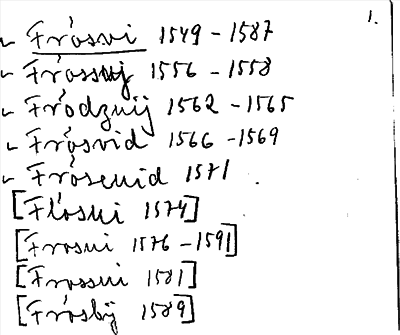 1.
Frósvi 1549 - 1587
Fróssuj 1556 - 1558
Fródznij 1562 - 1565
Frósvid 1566 - 1569
Frósenid 1571
[Flósni 1574]
[Frosni 1576 - 1591]
[Frossni 1581]
[Frósbÿ 1589]